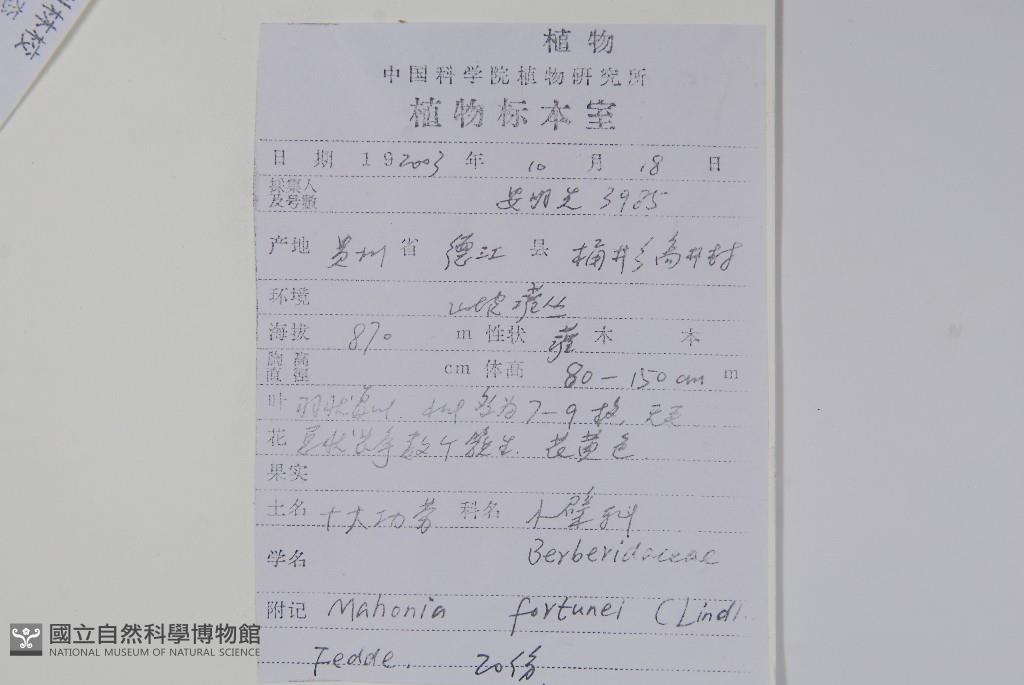 植物
中国科学院植物研究所
植物标本室
日期 19 2003 年 10 月 18 日
採集人及号數 安明先 3985
产地 贵州 省 德江 县 桶井乡高井村
环境 山坡灌丛
海拔 870 m 性状 灌 木 本
胸高直徑 cm 体高 80-150cm m
叶 羽状复叶. 小叶多为7-9枚, 无毛
花 总状花序数个簇生. 花黄色.
果实
土名 十大功劳 科名 小檗科
学名 Berberidaceae
附记 Mahonia fortunei (Lindl.
Fedde. 20份
國立自然科學博物館
NATIONAL MUSEUM OF NATURAL SCIENCE